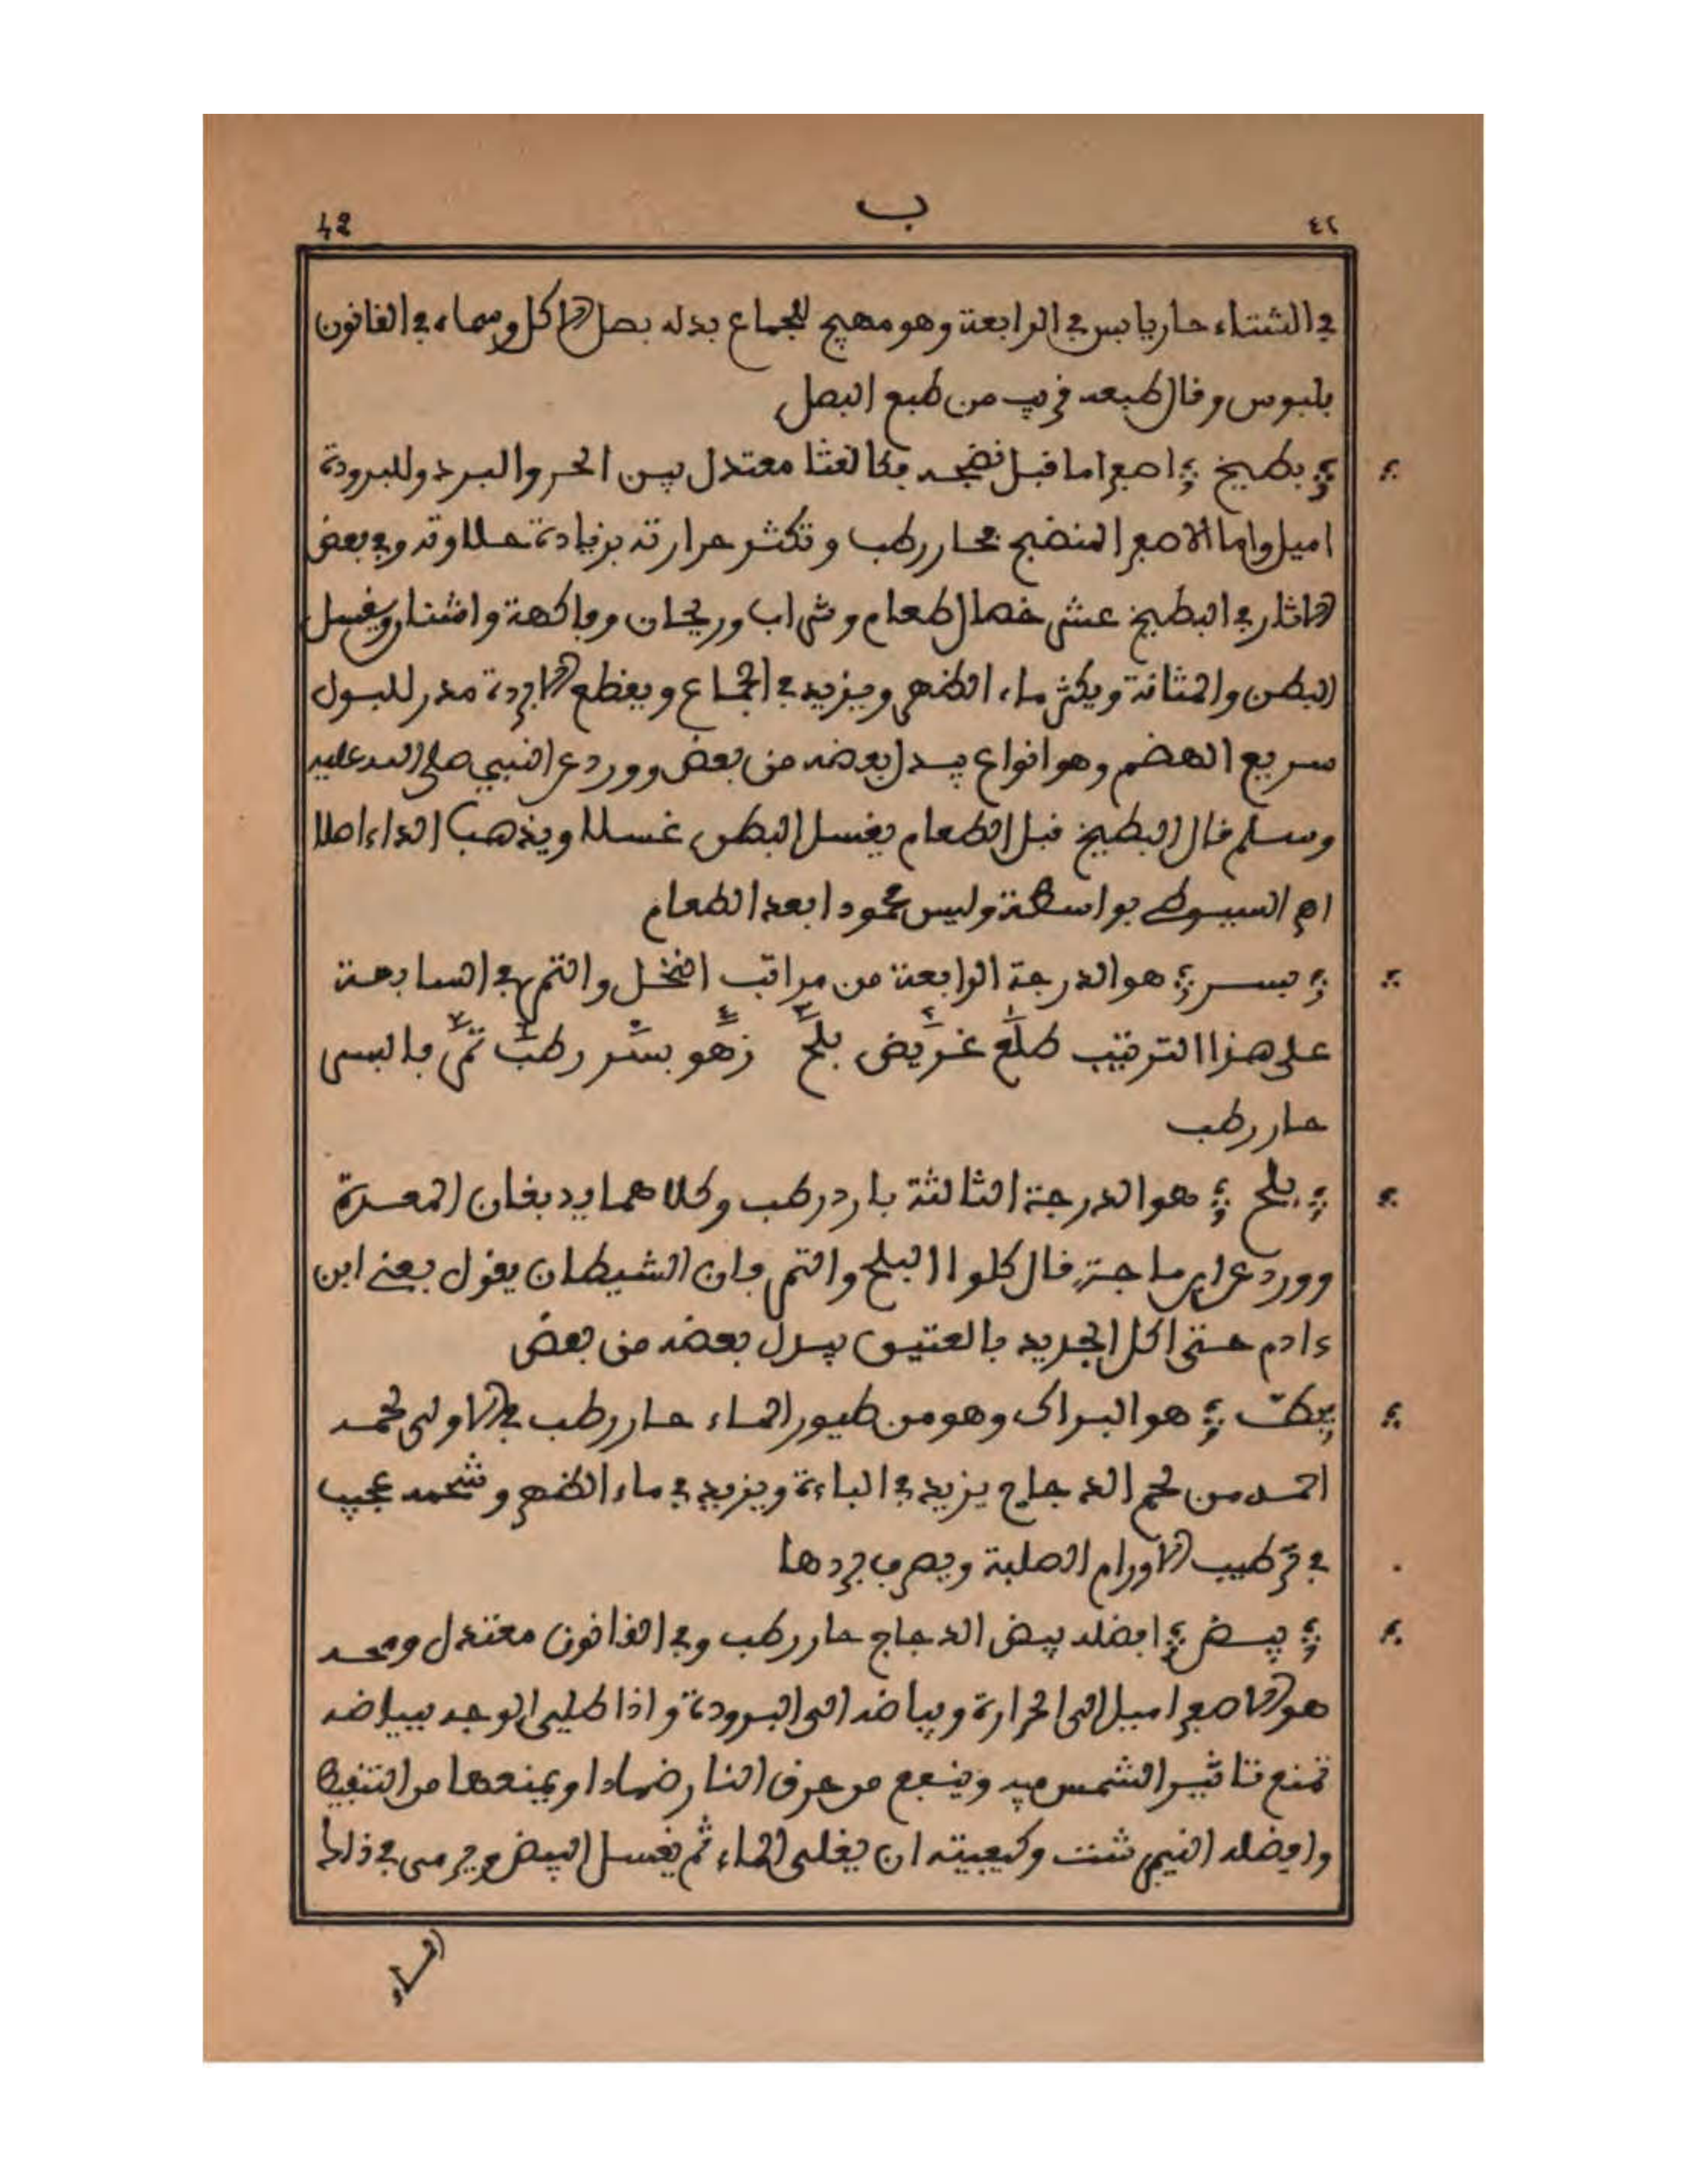 42 ب ٤٢
في الشتاء حار يابس في الرابعة وهو مهيج للجماع بدله بصل الاكل وسماه في القانون
بلبوس وقال طبعه قريب من طبع البصل
بطيخ اصفر اما قبل نضجه فكالقثا معتدل بين الحر والبرد وللبرودة
اميل واما الاصفر المنضج فحار رطب وتكثر حرارته بزيادة حلاوته وفي بعض
الاثار في البطيخ عشر خصال طعام وشراب وريحان وفاكهة واشنان ويغسل
البطن والمثانة ويكثر ماء الظهر ويزيد في الجماع ويقطع الابردة مدر للبول
سريع الهضم وهو انواع يبدل بعضه من بعض وورد عن النبي صلى الله عليه
وسلم قال البطيخ قبل الطعام يغسل البطن غسلا ويذهب الداء اصلا
اه السيوطي بواسطة وليس محمودا بعد الطعام
بسر هو الدرجة الرابعة من مراتب النخل والتمر في السابعة
على هذا الترتيب طلع غريض بلح زهو بسر رطب تمر فالبسر
حار رطب
بلح هو الدرجة الثالثة بارد رطب وكلاهما يدبغان المعدة
وورد عن ابن ماجة قال كلوا البلح والتمر فان الشيطان يقول بقي ابن
ءادم حتى اكل الجديد بالعتيق يبدل بعضه من بعض
بط هو البراك وهو من طيور الماء حار رطب في الاولى لحمه
احمد من لحم الدجاج يزيد في الباءة ويزيد في ماء الظهر وشحمه عجيب
في ترطيب الاورام الصلبة ويصرف بردها
بيض افضله بيض الدجاج حار رطب وفي القانون معتدل ومحه
هو الاصفر اميل الى الحرارة وبياضه الى البرودة واذا طلي الوجه ببياضه
تمنع تاثير الشمس فيه وينفع من حرق النار ضمادا ويمنعها من التنفيط
وافضله النيمرشت وكيفيته ان يغلى الماء ثم يغسل البيض ويرمى في ذلك
الماء